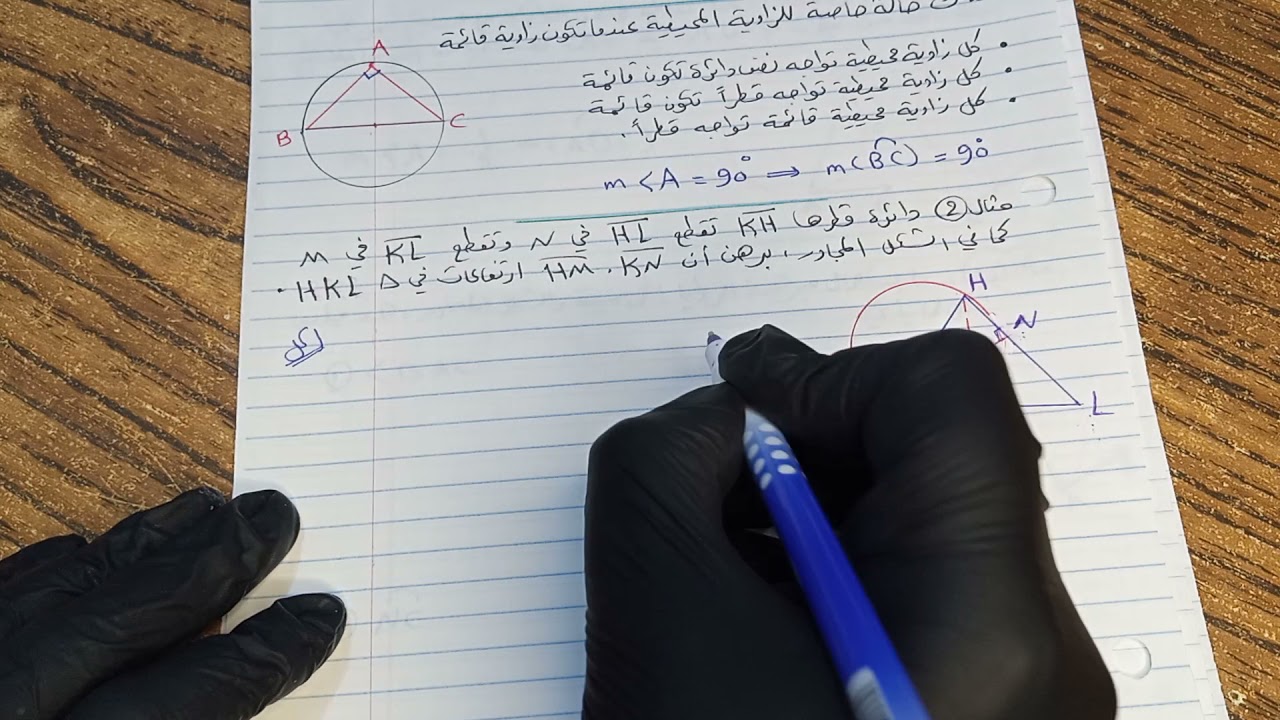 حالة خاصة للزاوية المحيطية عندما تكون زاوية قائمة
• كل زاوية محيطية تواجه نصف دائرة تكون قائمة
• كل زاوية محيطية تواجه قطراً تكون قائمة
• كل زاوية محيطية قائمة تواجه قطراً.
A
B
C
m<A = 90° ⇒ m(BC) = 90°
مثال ② دائرة قطرها KH تقطع HL في N وتقطع KL في M
كما في الشكل المجاور، برهن أن KN، HM ارتفاعات في Δ HKL.
H
N
L